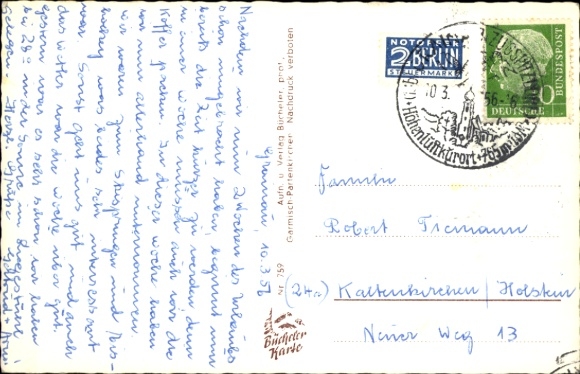 Grainau, 10.3.58
Nachdem wir nun 2 Wochen des Urlaubes
schon rumgebracht haben, beginnt nun
bereits die Zeit kürzer zu werden, denn
in einer Woche müssen auch wir die
Koffer packen. In dieser Woche haben
wir nur allerhand unternommen.
wir waren zum Skispringen und
war. Sonst geht uns gut und auch
das Wetter war die Woche über gut.
gestern war es sehr schon wir haben
bei 28° in der Sonne im Liegestuhl
gelegen. Herzl. Grüße
Aufn. u. Verlag Bücheler, phot.
Garmisch-Partenkirchen Nachdruck verboten
Nr. 759
Bücheler
Karte
NOTOPFER
2 BERLIN
STEUERMARKE
DEUTSCHE
BUNDESPOST
10
10.3.
Höhenluftkurort
Familie
Robert Tiemann
(24a) Kaltenkirchen / Holstein
Neuer Weg 13